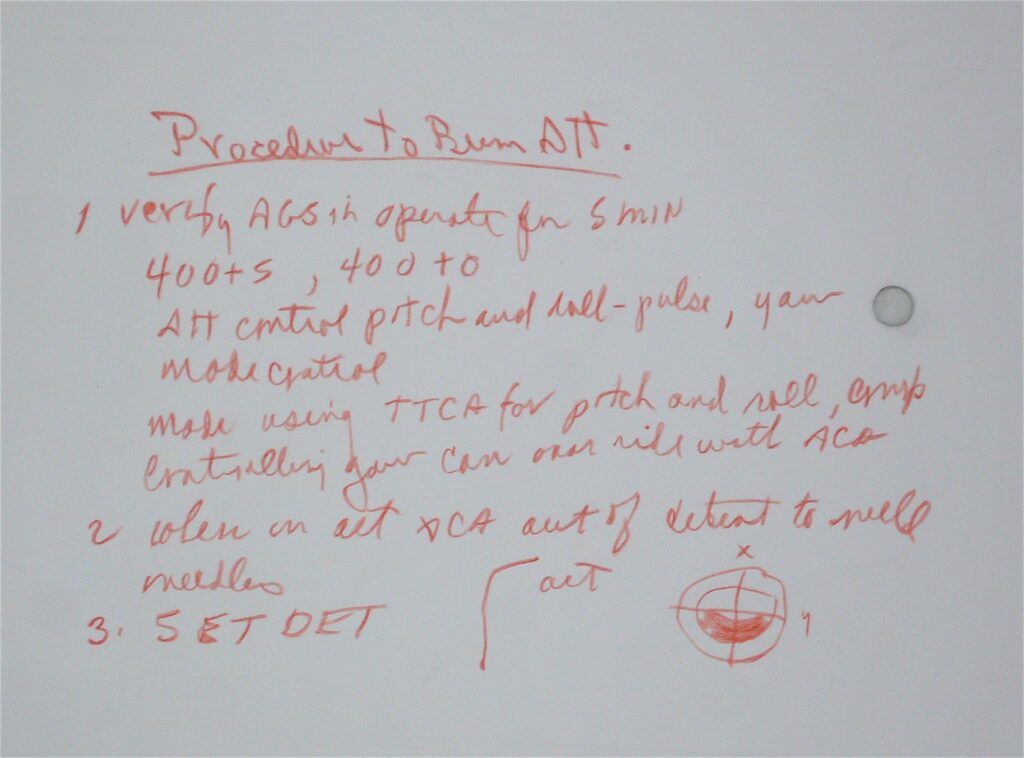 Procedure to Burn Att.
1 verify AGS in operate for 5 MIN
400+5, 400+0
Att control pitch and roll-pulse, yaw
mode control
mode using TTCA for pitch and roll, comp
controlling yaw can over ride with ACA
2 when in att ACA out of detent to null
needles
3. SET DET
att
x
y